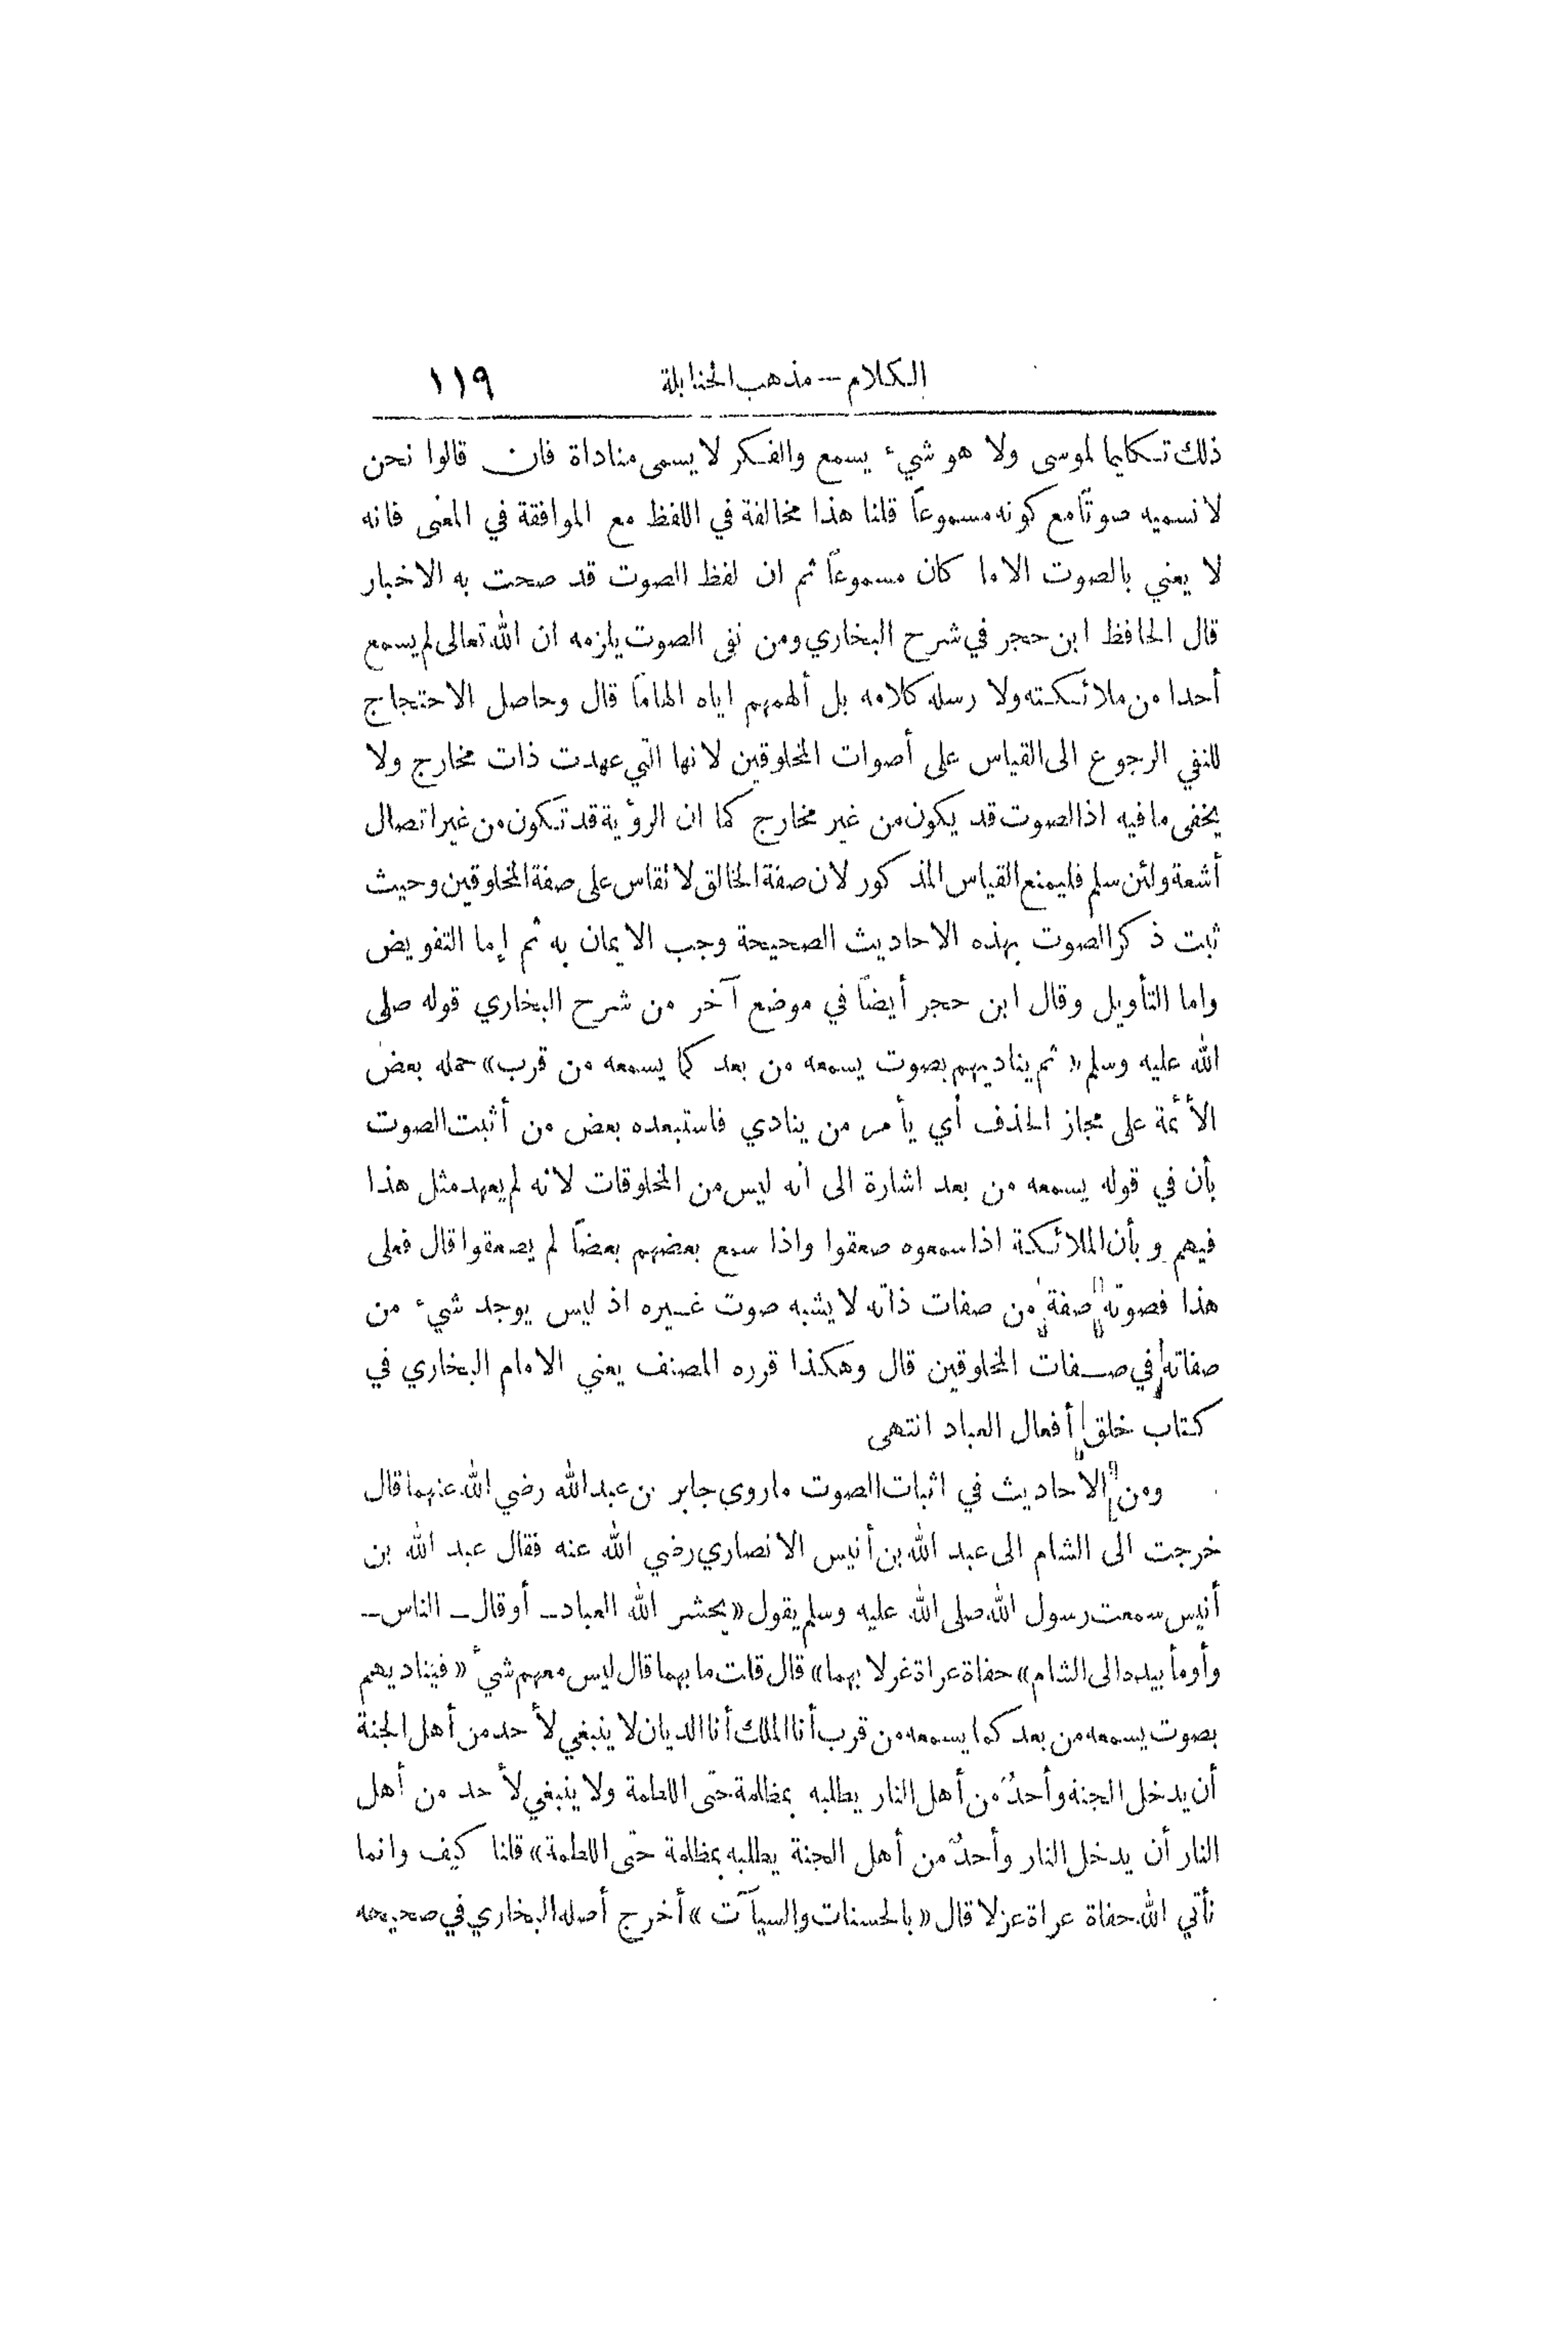 الكلام — مذهب الحنابلة ١١٩
ذلك تكليما لموسى ولا هو شيء يسمع والفكر لا يسمى مناداة فان قالوا نحن
لا نسميه صوتاً مع كونه مسموعاً قلنا هذا مخالفة في اللفظ مع الموافقة في المعنى فانه
لا يعني بالصوت الا ما كان مسموعاً ثم ان لفظ الصوت قد صحت به الاخبار
قال الحافظ ابن حجر في شرح البخاري ومن نفى الصوت يلزمه ان الله تعالى لم يسمع
أحدا من ملائكته ولا رسله كلامه بل ألهمهم اياه الهاماً قال وحاصل الاحتجاج
للنفي الرجوع الى القياس على أصوات المخلوقين لانها التي عهدت ذات مخارج ولا
يخفى ما فيه اذ الصوت قد يكون من غير مخارج كما ان الرؤية قد تكون من غير اتصال
أشعة ولئن سلم فليمنع القياس المذكور لان صفة الخالق لا تقاس على صفة المخلوقين وحيث
ثبت ذكر الصوت بهذه الاحاديث الصحيحة وجب الايمان به ثم إما التفويض
واما التأويل وقال ابن حجر أيضاً في موضع آخر من شرح البخاري قوله صلى
الله عليه وسلم « ثم يناديهم بصوت يسمعه من بعد كما يسمعه من قرب » حمله بعض
الأئمة على مجاز الحذف أي يأمر من ينادي فاستبعده بعض من أثبت الصوت
بأن في قوله يسمعه من بعد اشارة الى انه ليس من المخلوقات لانه لم يعهد مثل هذا
فيهم وبأن الملائكة اذا سمعوه صعقوا واذا سمع بعضهم بعضاً لم يصعقوا قال فعلى
هذا فصوته صفة من صفات ذاته لا يشبه صوت غيره اذ ليس يوجد شيء من
صفاته في صفات المخلوقين قال وهكذا قرره المصنف يعني الامام البخاري في
كتاب خلق أفعال العباد انتهى
ومن الاحاديث في اثبات الصوت ما روى جابر بن عبد الله رضي الله عنهما قال
خرجت الى الشام الى عبد الله بن أنيس الانصاري رضي الله عنه فقال عبد الله بن
أنيس سمعت رسول الله صلى الله عليه وسلم يقول « يحشر الله العباد — أو قال — الناس —
وأومأ بيده الى الشام » حفاة عراة غرلا بهما » قال قلت ما بهما قال ليس معهم شيء « فيناديهم
بصوت يسمعه من بعد كما يسمعه من قرب أنا الملك أنا الديان لا ينبغي لأحد من أهل الجنة
أن يدخل الجنة وأحدٌ من أهل النار يطلبه بمظلمة حتى اللطمة ولا ينبغي لأحد من أهل
النار أن يدخل النار وأحدٌ من أهل الجنة يطلبه بمظلمة حتى اللطمة » قلنا كيف وانما
نأتي الله حفاة عراة عزلا قال « بالحسنات والسيآت » أخرج أصله البخاري في صحيحه